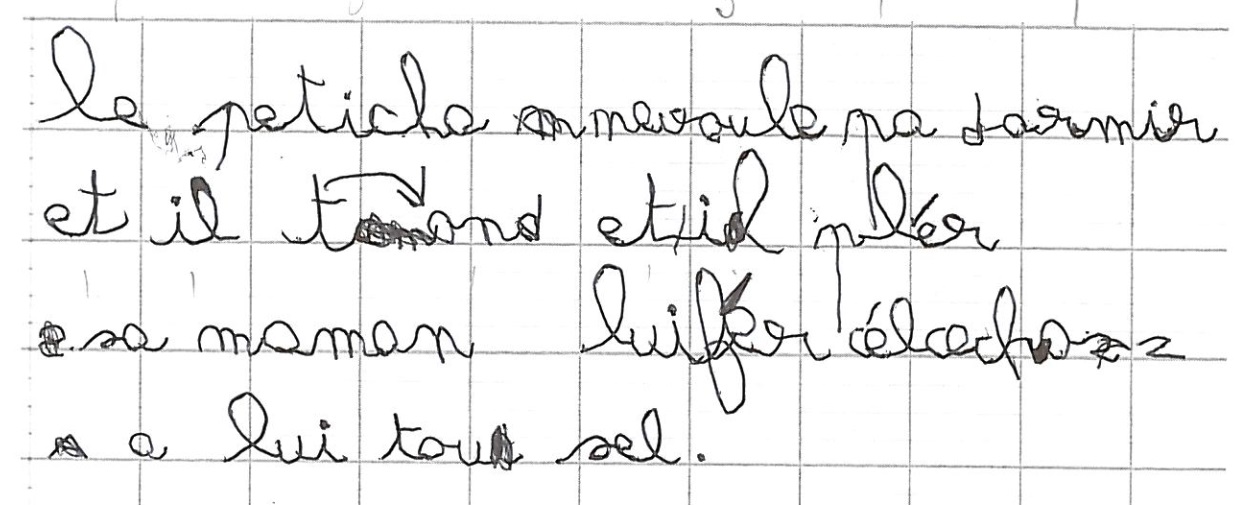 le peticha mnevoule pa dormir
et il tand et il pler
e sa maman luifer célcechoz
a lui tou sel.